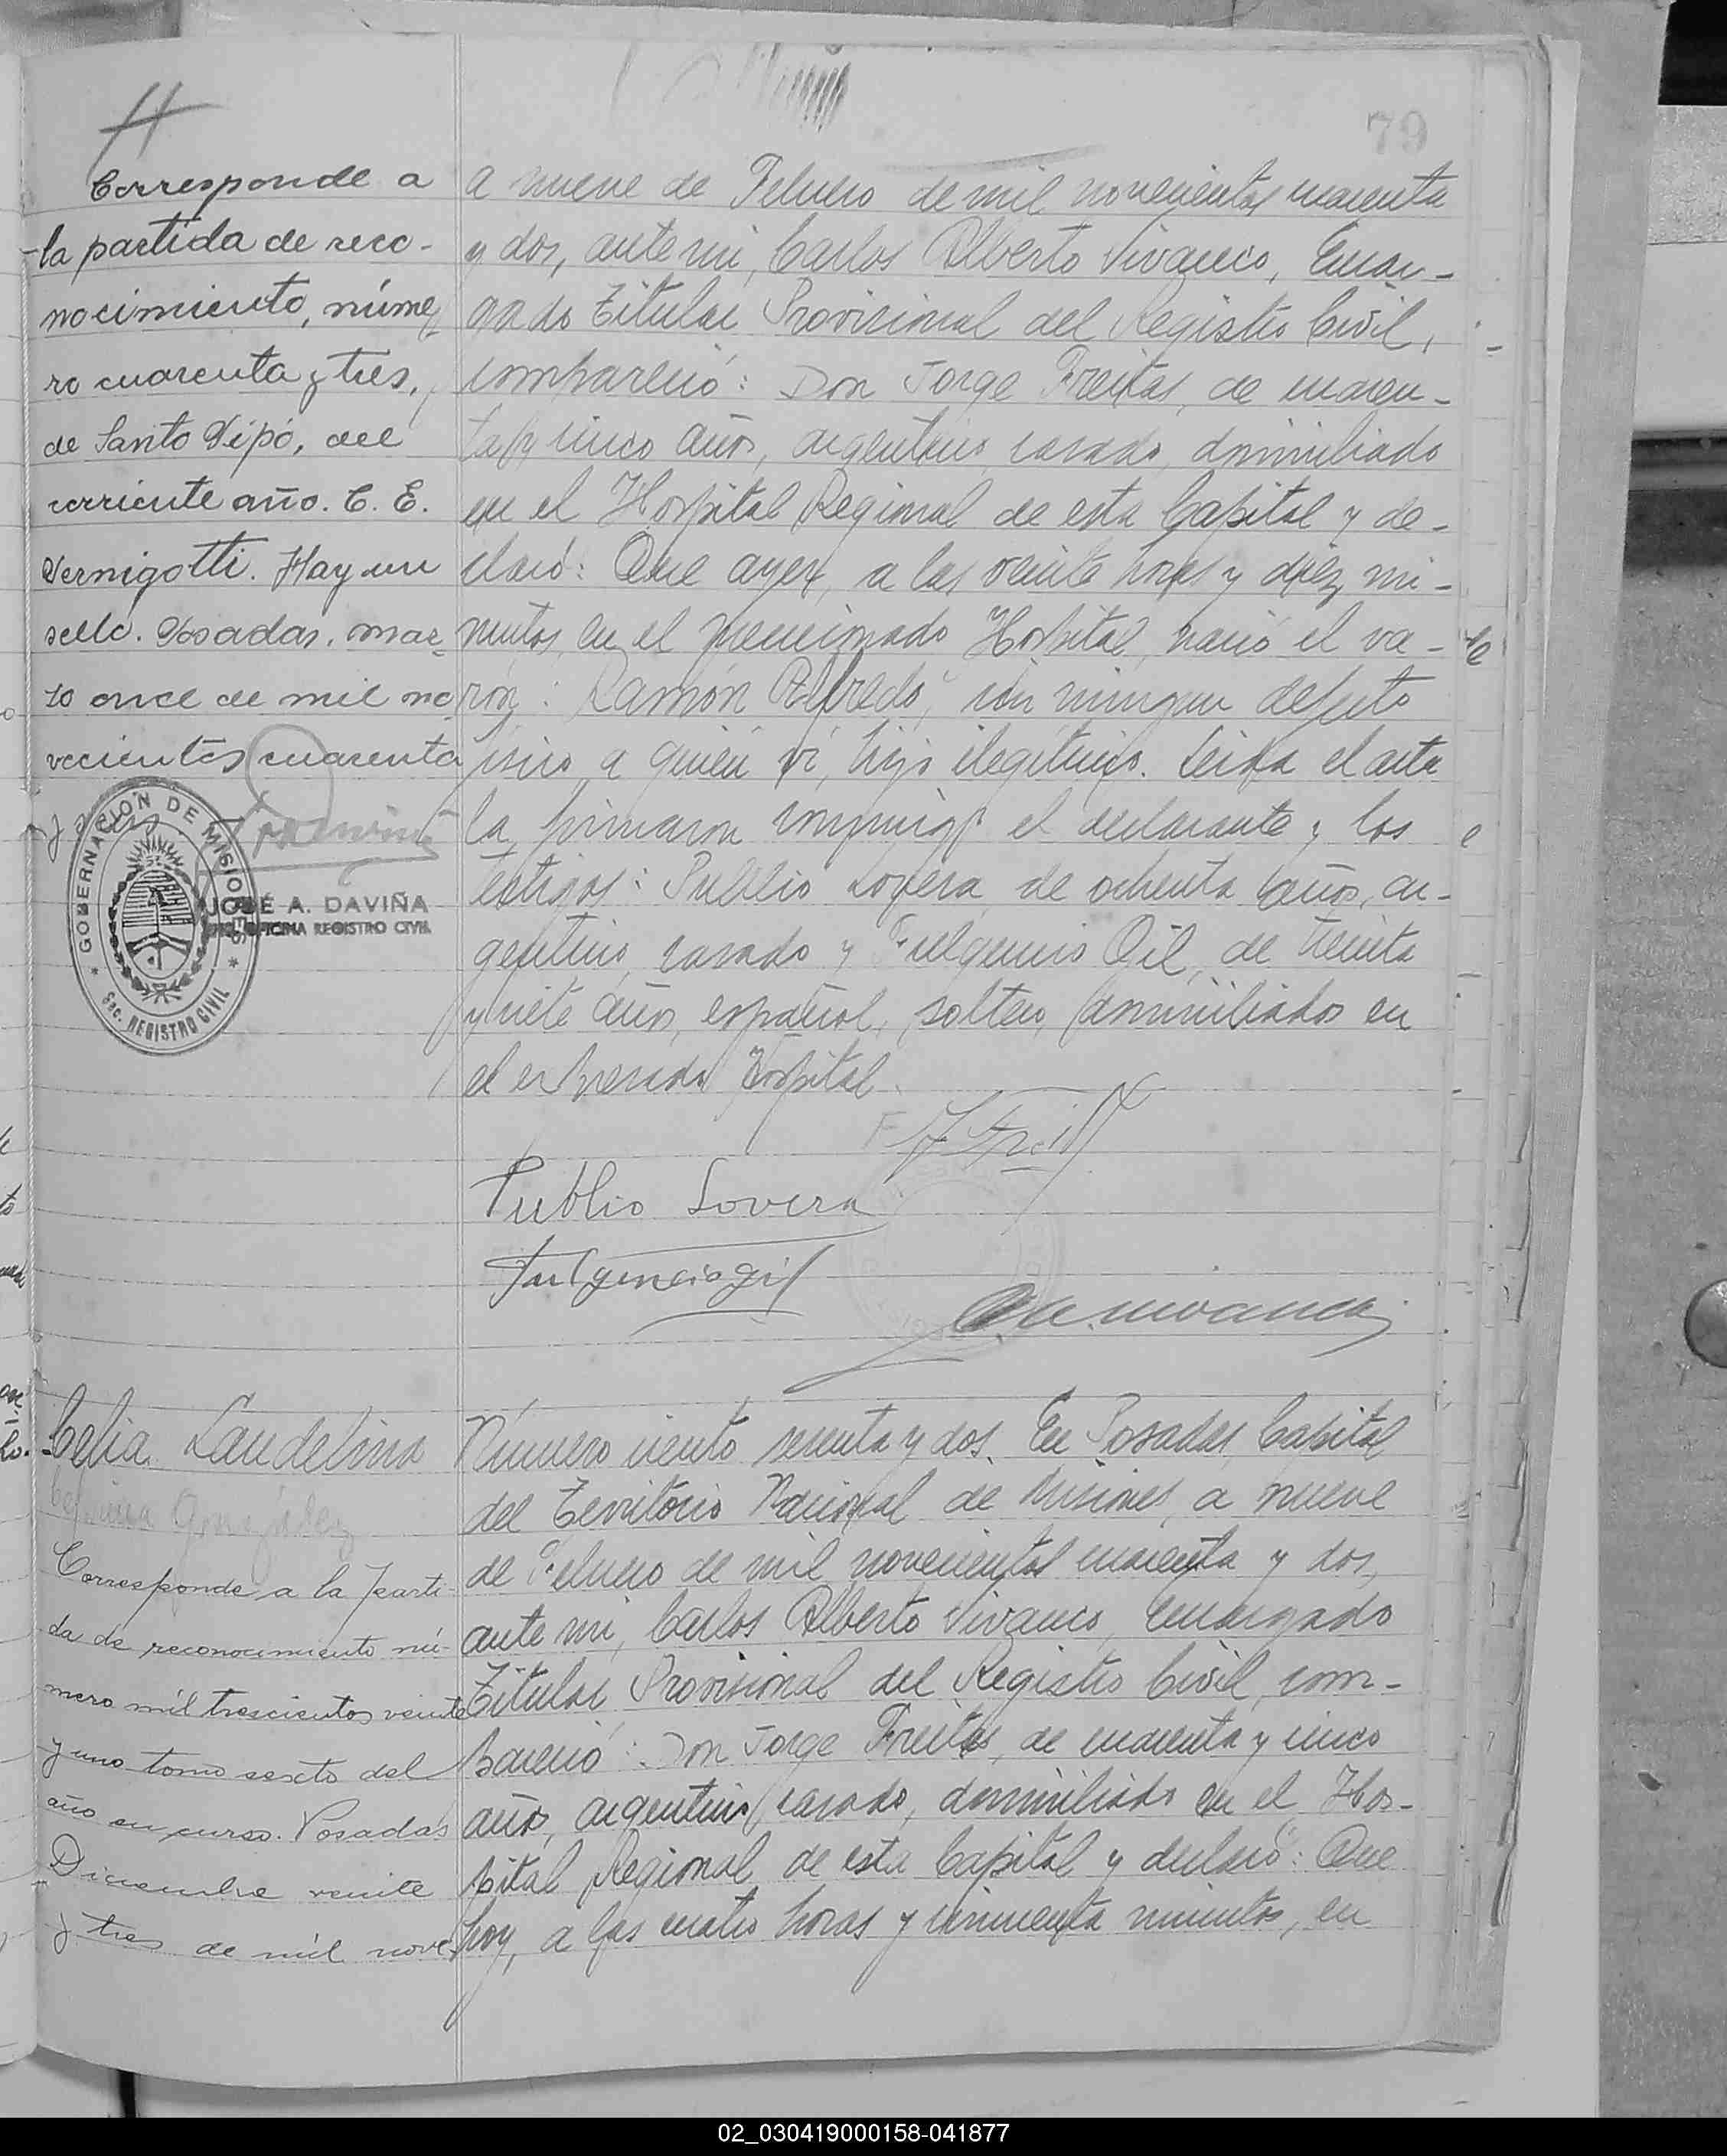 79
Corresponde a
la partida de reco-
nocimiento, núme
ro cuarenta y tres,
de Santo Pipó, del
corriente año. C. E.
Vernigotti. Hay un
sello. Posadas, mar-
zo once de mil no
vecientos cuarenta
GOBERNACIÓN DE MISIONES
Sec. REGISTRO CIVIL
JOSÉ A. DAVIÑA
OFICINA REGISTRO CIVIL
a nueve de Febrero de mil novecientos cuarenta
y dos, ante mi, Carlos Alberto Vivanco, Encar-
gado Titular Provisional del Registro Civil,
compareció: Don Jorge Freitas, de cuaren-
ta y cinco años, argentino, casado, domiciliado
en el Hospital Regional de esta Capital y de-
claró: Que ayer, a las veinte horas y diez mi-
nutos, en el mencionado Hospital, nació el va-
rón: Ramón Alfredo, sin ningun defecto
físico, a quién ví, hijo ilegítimo. Leida el acta
la firmaron conmigo el declarante y los
testigos: Publio Lovera, de ochenta años, ar-
gentino, casado y Fulgencio Gil, de treinta
y siete años, español, soltero, domiciliados en
el expresado Hospital.
Publio Lovera
Fulgencio gil
Celia Laudelina
González
Corresponde a la parti-
da de reconocimiento nú-
mero mil trescientos veinte
y uno tomo sexto del
año en curso. Posadas
Diciembre veinte
y tres de mil nove-
Número ciento sesenta y dos. En Posadas, Capital
del Territorio Nacional de Misiones, a nueve
de Febrero de mil novecientos cuarenta y dos,
ante mi, Carlos Alberto Vivanco, Encargado
Titular Provisional del Registro Civil, com-
pareció: Don Jorge Freitas, de cuarenta y cinco
años, argentino, casado, domiciliado en el Hos-
pital Regional de esta Capital y declaró: Que
hoy, a las cuatro horas y cincuenta minutos, en
02_030419000158-041877